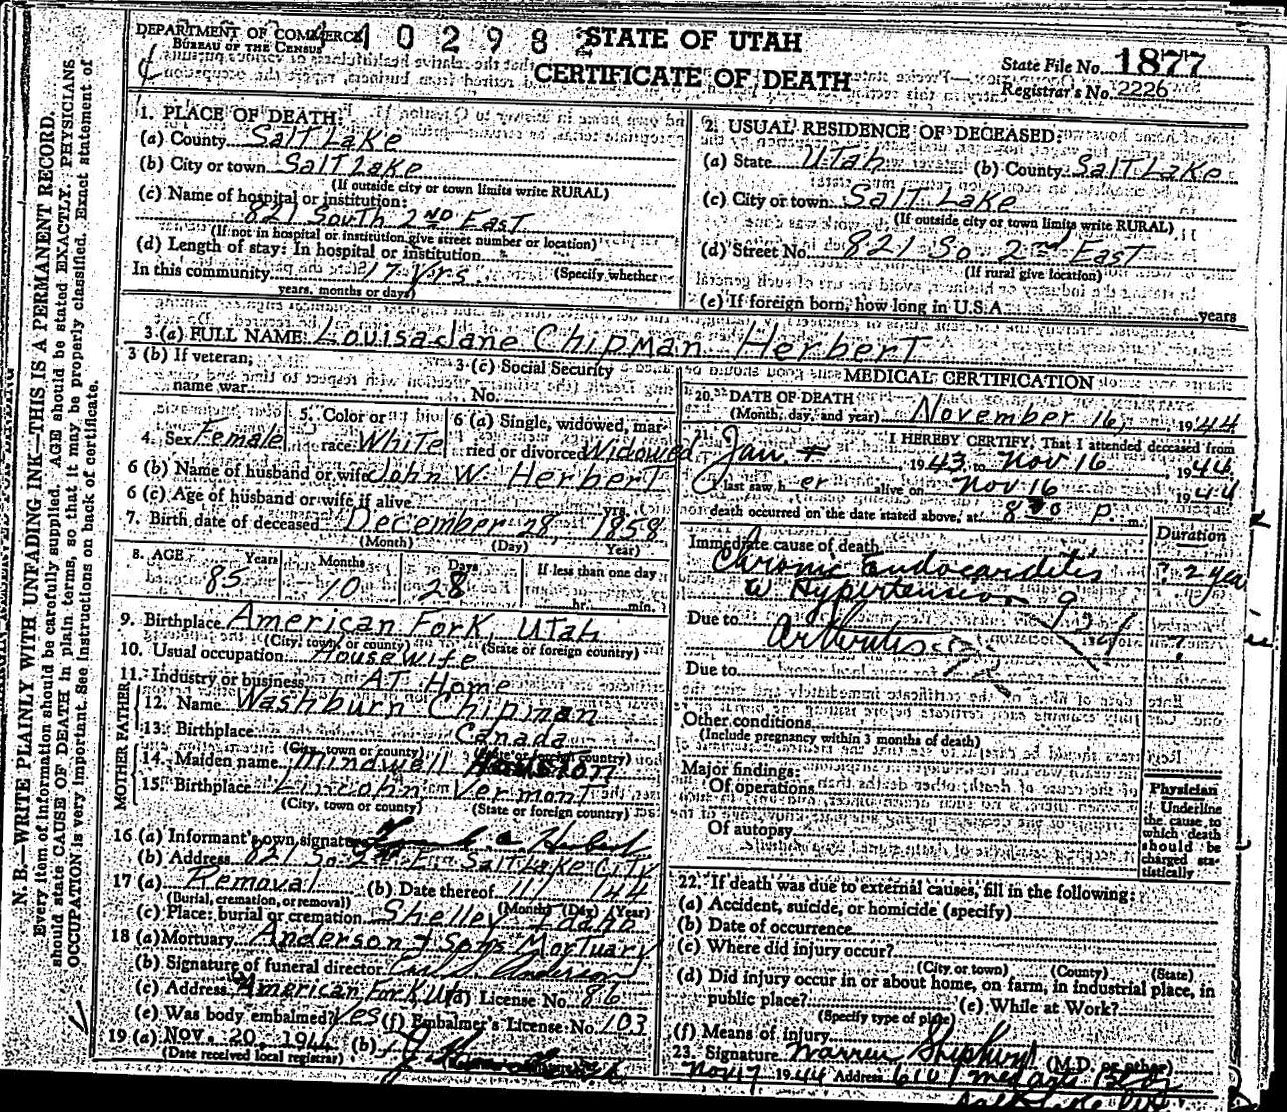 DEPARTMENT OF COMMERCE
BUREAU OF THE CENSUS
1102982
STATE OF UTAH
CERTIFICATE OF DEATH
State File No. 1877
Registrar's No. 2226
1. PLACE OF DEATH:
(a) County Salt Lake
(b) City or town Salt Lake
(If outside city or town limits write RURAL)
(c) Name of hospital or institution:
821 South 2ND East
(If not in hospital or institution give street number or location)
(d) Length of stay: In hospital or institution
In this community 17 yrs. (Specify whether
years, months or days)
2. USUAL RESIDENCE OF DECEASED:
(a) State Utah (b) County Salt Lake
(c) City or town Salt Lake
(If outside city or town limits write RURAL)
(d) Street No. 821 So 2nd East
(If rural give location)
(e) If foreign born, how long in U.S.A. years
3 (a) FULL NAME: Louisa Jane Chipman Herbert
3 (b) If veteran, name war
3 (c) Social Security No.
4. Sex Female
5. Color or race White
6 (a) Single, widowed, married or divorced Widowed
6 (b) Name of husband or wife John W. Herbert
6 (c) Age of husband or wife if alive yrs.
7. Birth date of deceased December 28, 1858
(Month) (Day) (Year)
8. AGE Years Months Days If less than one day
85 10 28 hr. min.
9. Birthplace American Fork, Utah
(City, town, or county) (State or foreign country)
10. Usual occupation Housewife
11. Industry or business AT Home
FATHER
12. Name Washburn Chipman
13. Birthplace Canada
(City, town or county) (State or foreign country)
MOTHER
14. Maiden name Mindwell Houston
15. Birthplace Lincoln Vermont
(City, town or county) (State or foreign country)
16 (a) Informant's own signature Herbert
(b) Address 821 So. 2nd E. Salt Lake City
17 (a) Removal (b) Date thereof 11/ /44
(Burial, cremation, or removal) (Month) (Day) (Year)
(c) Place: burial or cremation Shelley Idaho
18 (a) Mortuary Anderson & Sons Mortuary
(b) Signature of funeral director Anderson
(c) Address American Fork Ut (d) License No. 86
(e) Was body embalmed? Yes (f) Embalmer's License No. 103
19 (a) NOV. 20, 1944 (b)
(Date received local registrar)
MEDICAL CERTIFICATION
20. DATE OF DEATH
(Month, day, and year) November 16, 1944
I HEREBY CERTIFY, That I attended deceased from
Jan 1943, to Nov 16 1944
I last saw her alive on Nov 16 1944
death occurred on the date stated above, at 8 30 P. m.
Immediate cause of death Duration
Chronic Endocarditis ? 2 year
w Hypertension
Due to Arthritis ?
Due to
Other conditions
(Include pregnancy within 3 months of death)
Major findings:
Of operations
Of autopsy
Physician
Underline
the cause to
which death
should be
charged sta-
tistically
22. If death was due to external causes, fill in the following:
(a) Accident, suicide, or homicide (specify)
(b) Date of occurrence
(c) Where did injury occur?
(City or town) (County) (State)
(d) Did injury occur in or about home, on farm, in industrial place, in
public place? (e) While at Work?
(Specify type of place)
(f) Means of injury
23. Signature Warren Shepherd (M.D. or other)
Nov 17 1944 Address 610 Med arts Bldg
Salt Lake City
N. B.—WRITE PLAINLY WITH UNFADING INK—THIS IS A PERMANENT RECORD.
Every item of information should be carefully supplied. AGE should be stated EXACTLY. PHYSICIANS
should state CAUSE OF DEATH in plain terms, so that it may be properly classified. Exact statement of
OCCUPATION is very important. See instructions on back of certificate.